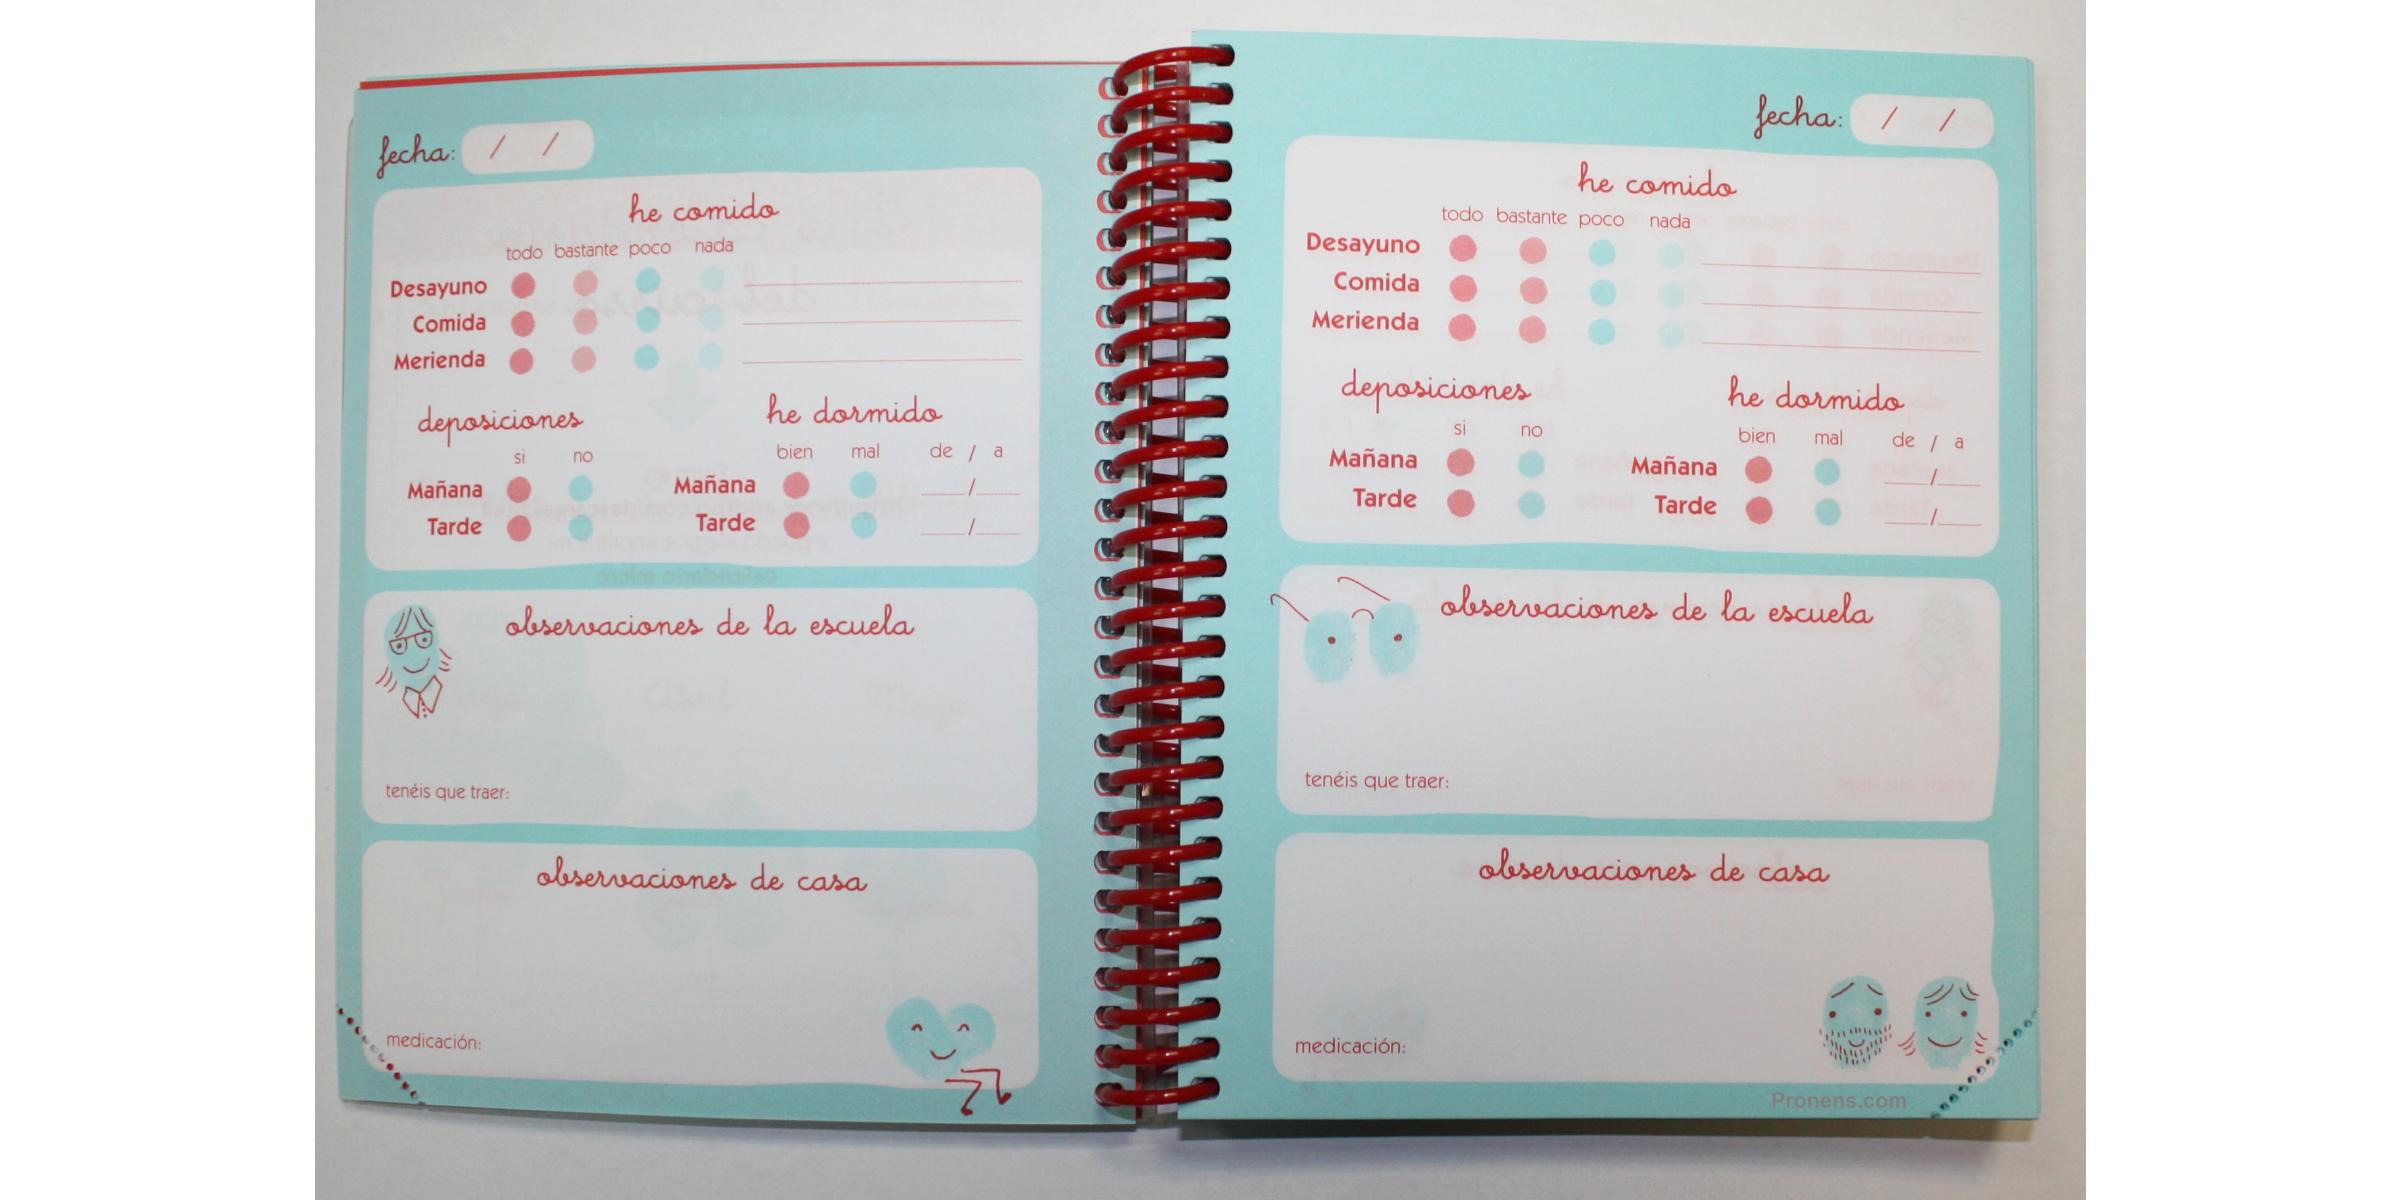 fecha: / /
he comido
todo bastante poco nada
Desayuno
Comida
Merienda
deposiciones
si no
Mañana
Tarde
he dormido
bien mal de / a
Mañana /
Tarde /
observaciones de la escuela
tenéis que traer:
observaciones de casa
medicación:
fecha: / /
he comido
todo bastante poco nada
Desayuno
Comida
Merienda
deposiciones
si no
Mañana
Tarde
he dormido
bien mal de / a
Mañana /
Tarde /
observaciones de la escuela
tenéis que traer:
observaciones de casa
medicación:
Pronens.com